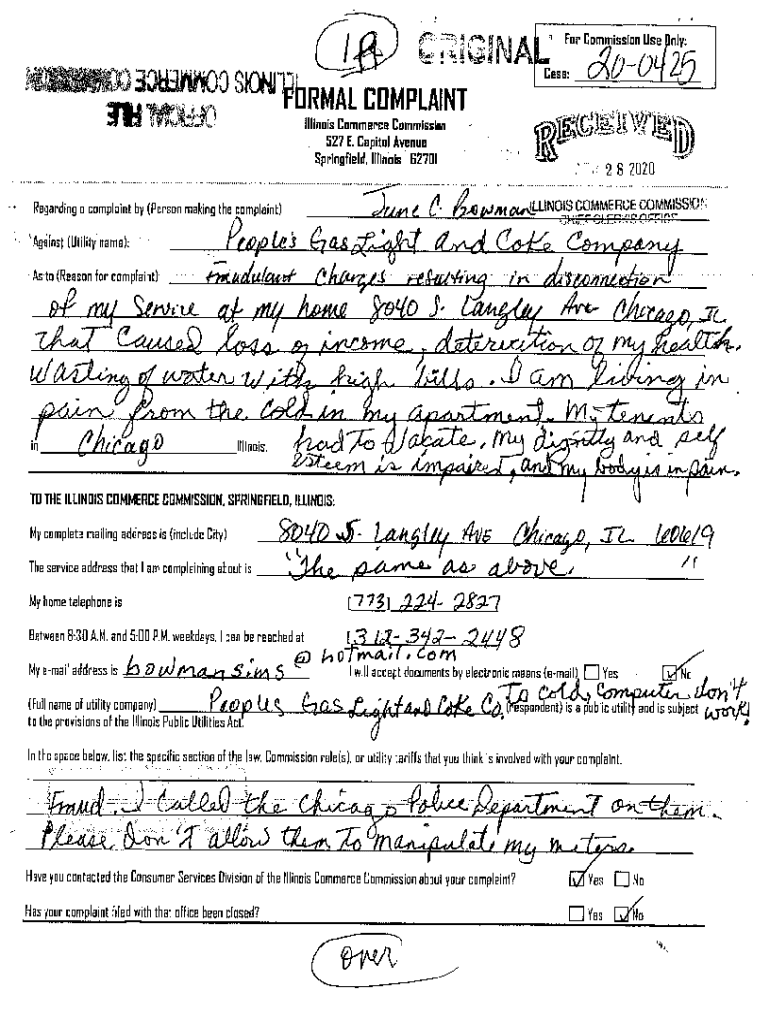 1A
ORIGINAL
For Commission Use Only:
Case: 20-0425
ILLINOIS COMMERCE COMMISSION
OFFICIAL FILE
FORMAL COMPLAINT
Illinois Commerce Commission
527 E. Capitol Avenue
Springfield, Illinois 62701
RECEIVED
28 2020
Regarding a complaint by (Person making the complaint) June C. Bowman
ILLINOIS COMMERCE COMMISSION
CHIEF CLERK'S OFFICE
Against (Utility name): People's Gas Light and Coke Company
As to (Reason for complaint) Fraudulant Charges resulting in disconnection
of my Service at my home 8040 S. Langley Ave Chicago, IL
that caused loss of income, deterioition of my health.
Wasting of water with high bills. I am living in
pain from the cold in my apartment. My tenents
in Chicago Illinois. had to Vacate, my dignitly and self
esteem is impaired, and my body is in pain.
TO THE ILLINOIS COMMERCE COMMISSION, SPRINGFIELD, ILLINOIS:
My complete mailing address is (include City) 8040 S. Langley AVE Chicago, IL 60619
The service address that I am complaining about is "The same as above. "
My home telephone is (773) 224-2827
Between 8:30 A.M. and 5:00 P.M. weekdays, I can be reached at (312-342-2448
My e-mail address is bowmansims @hotmail.com I will accept documents by electronic means (e-mail) Yes No
To cold, Computer don't work!
(Full name of utility company) Peoples Gas Light and Coke Co. (respondent) is a public utility and is subject
to the provisions of the Illinois Public Utilities Act.
In the space below, list the specific section of the law, Commission rule(s), or utility tariffs that you think is involved with your complaint.
Fraud. I Called the Chicago Police Department on them.
Please don't allow them to manipulate my meters.
Have you contacted the Consumer Services Division of the Illinois Commerce Commission about your complaint? Yes No
Has your complaint filed with that office been closed? Yes No
over